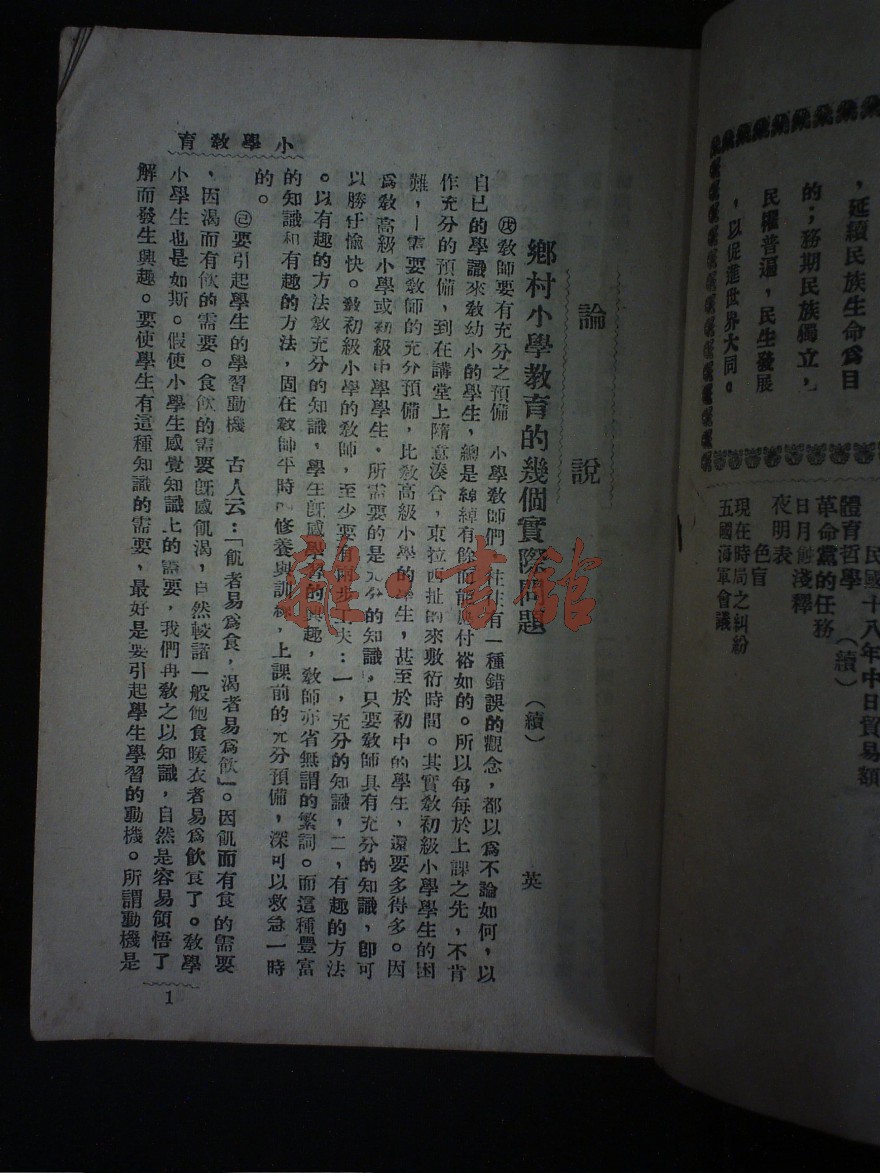 ，延續民族生命爲目
的；務期民族獨立，
民權普遍，民生發展
，以促進世界大同。
民國十八年中日貿易額
體育哲學（續）
革命黨的任務
日月蝕淺釋
夜明表
色盲
現在時局之糾紛
五國海軍會議
論說
鄉村小學教育的幾個實際問題（續）英
㊅教師要有充分之預備　小學教師們往往有一種錯誤的觀念，都以爲不論如何，以
自已的學識來敎幼小的學生，總是綽綽有餘而能應付裕如的。所以每每於上課之先，不肯
作充分的預備，到在講堂上隨意湊合，東拉西扯的來敷衍時間。其實敎初級小學學生的困
難，需要敎師的充分預備，比敎高級小學的學生，甚至於初中的學生，還要多得多。因
爲敎高級小學或初級中學學生，所需要的是充分的知識，只要敎師具有充分的知識，卽可
以勝任愉快。敎初級小學的敎師，至少要有兩步工夫：一，充分的知識，二，有趣的方法
。以有趣的方法敎充分的知識，學生旣感學習的興趣，敎師亦省無謂的繁詞。而這種豐富
的知識和有趣的方法，固在敎師平時的修養與訓練，上課前的充分預備，深可以救急一時
的。
㊂要引起學生的學習動機　古人云：「飢者易爲食，渴者易爲飲」。因飢而有食的需要
，因渴而有飲的需要。食飲的需要旣感飢渴，自然較諸一般飽食暖衣者易爲飲食了。敎學
小學生也是如斯。假使小學生感覺知識上的需要，我們再敎之以知識，自然是容易領悟了
解而發生興趣。要使學生有這種知識的需要，最好是要引起學生學習的動機。所謂動機是
小學敎育
1
雜·書館